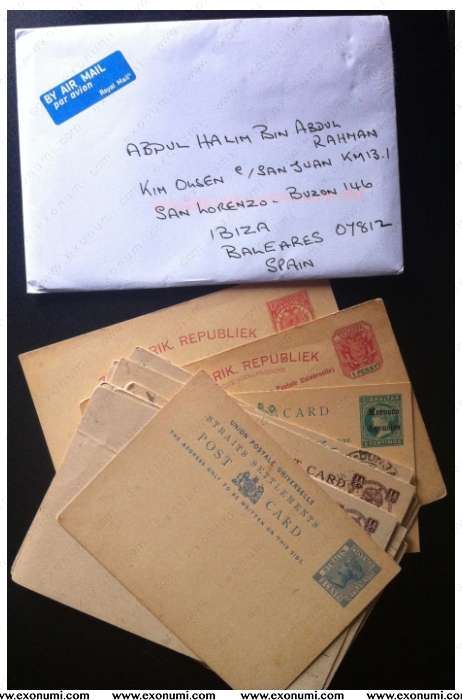 BY AIR MAIL
par avion
Royal Mail
ABDUL HALIM BIN ABDUL
RAHMAN
KIM OLSEN C/SAN JUAN KM13.1
SAN LORENZO - BUZON 146
IBIZA
BALEARES 07812
SPAIN
RIK. REPUBLIEK
RIK. REPUBLIEK
1 PENNY
GIBRALTAR
CARD
Morocco
Agencies
CARD
UNION POSTALE UNIVERSELLE
STRAITS SETTLEMENTS
POST CARD
THE ADDRESS ONLY TO BE WRITTEN ON THIS SIDE.
www.exonumi.com www.exonumi.com www.exonumi.com www.exonumi.com